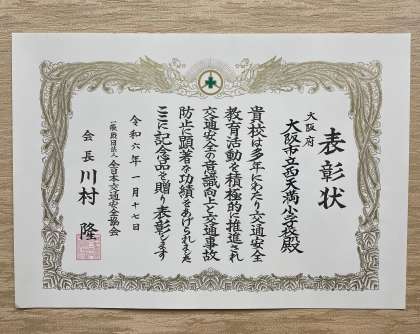 表彰状
大阪府
大阪市立西天満小学校殿
貴校は多年にわたり交通安全
教育活動を積極的に推進され
交通安全の意識向上と交通事故
防止に顕著な功績をあげられました
ここに記念品を贈り表彰します
令和六年一月十七日
一般財団法人 全日本交通安全協会
会長 川村隆